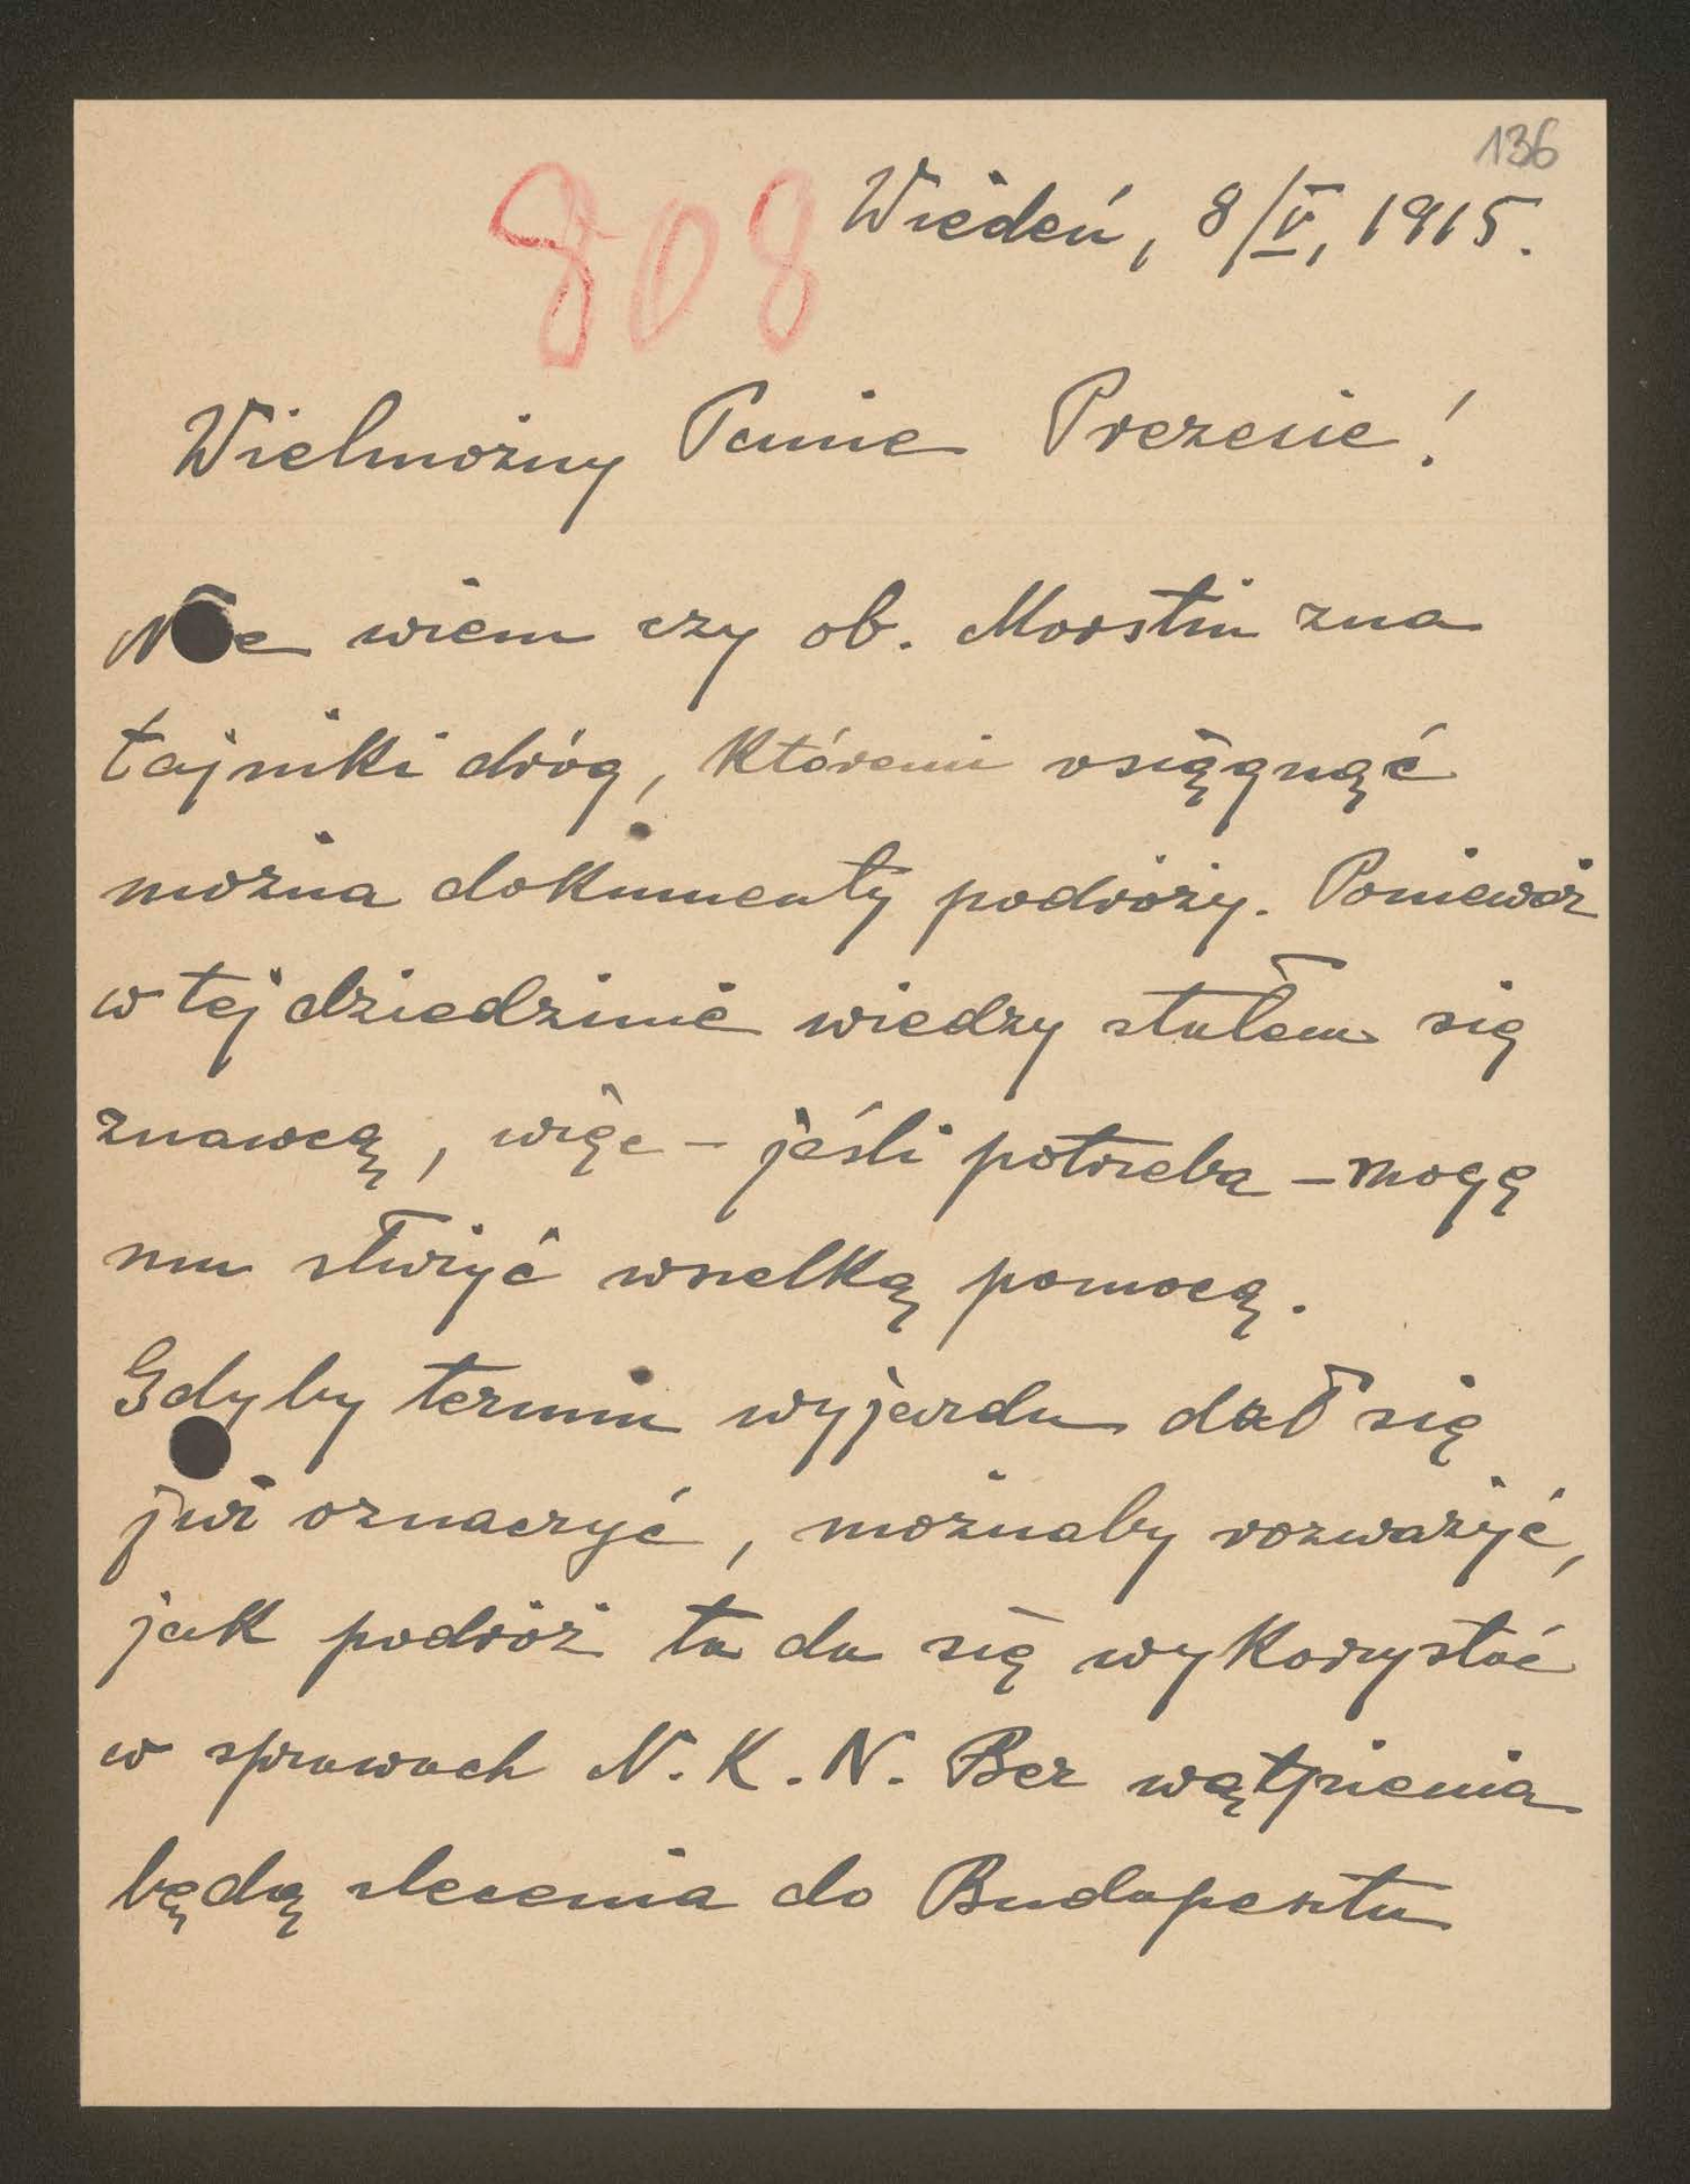 136
808
Wiedeń, 8/V, 1915.
Wielmożny Panie Prezesie!
Nie wiem czy ob. Morstin zna
tajniki dróg, któremi osiągnąć
można dokumenty podróży. Ponieważ
w tej dziedzinie wiedzy stałem się
znawcą, więc - jeśli potrzeba - mogę
mu służyć wszelką pomocą.
Gdyby termin wyjazdu dał się
już oznaczyć, możnaby rozważyć,
jak podróż ta da się wykorzystać
w sprawach N.K.N. Bez wątpienia
będą zlecenia do Budapesztu